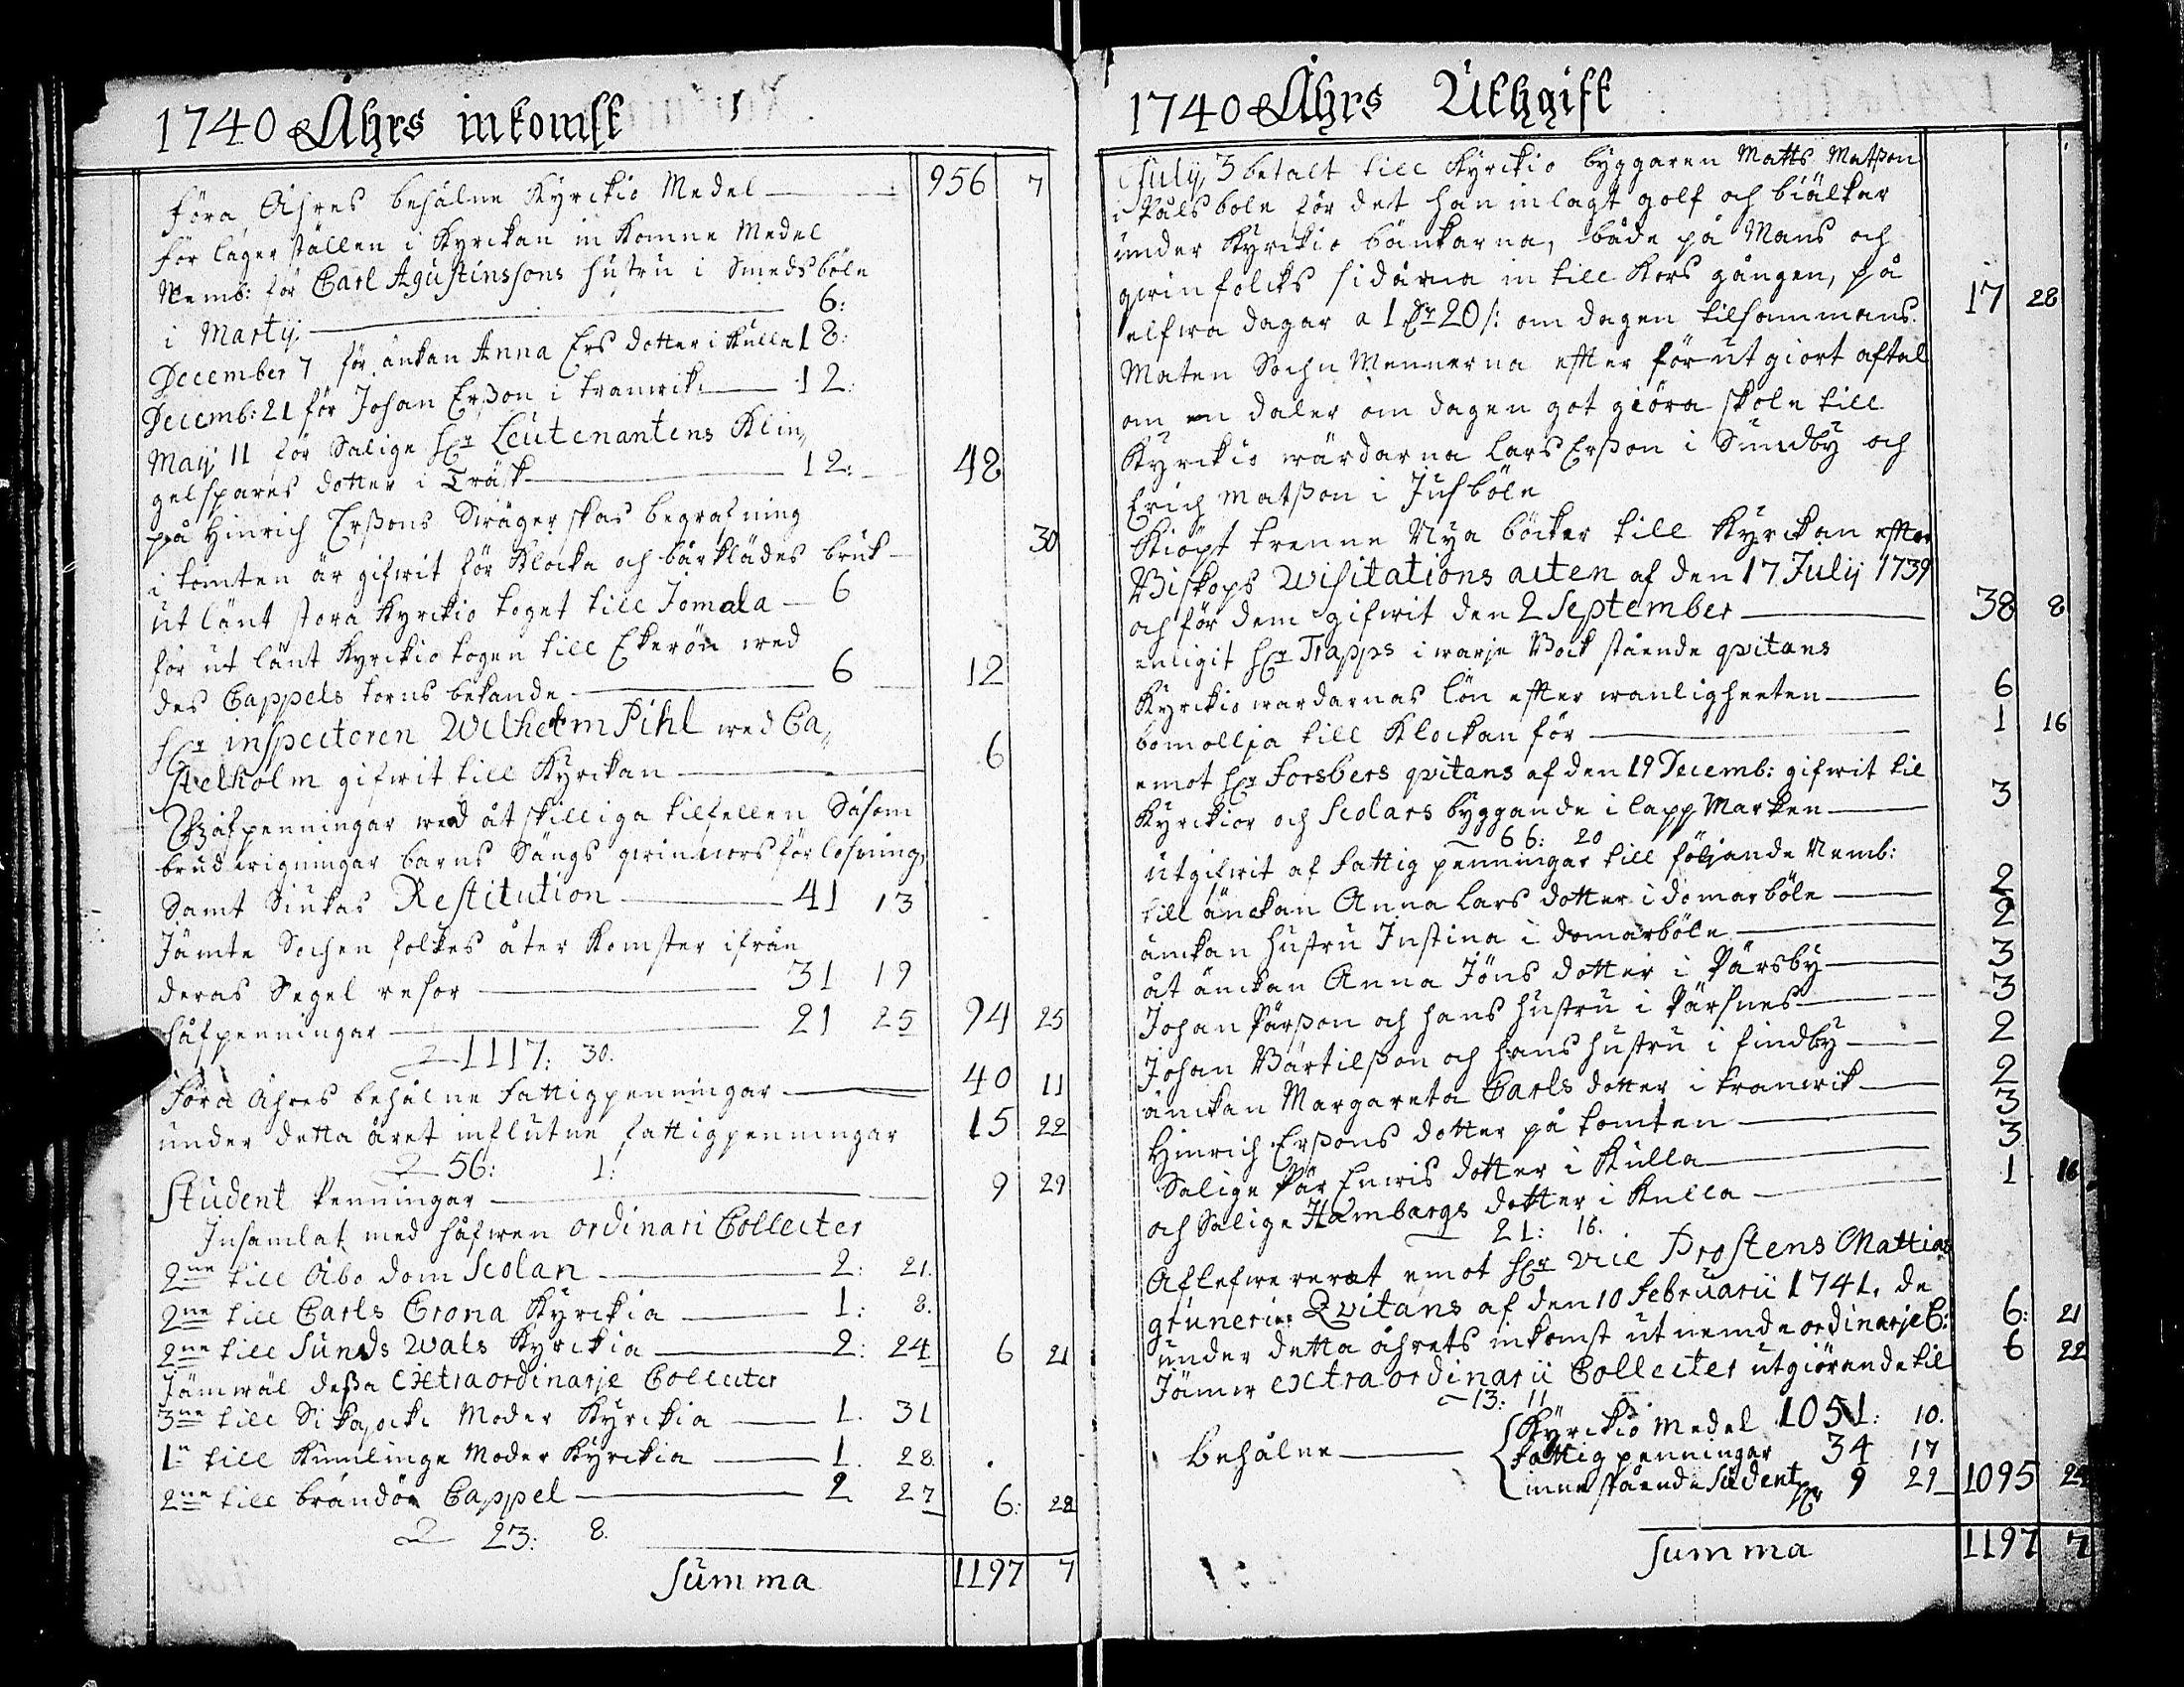 1740 Åhrs inkomst
föra Åhres behålne Kyrckio Medel 956 7
för läger ställen i Kyrckan in komne Medel
Nemb: för Carl Agustinssons hustru i Smedsböle
i Martij. 6:
December 7 för änkan Anna Ers dotter i Kulla 18:
Decemb: 21 för Johan Erßon i tranwik 12:
Maij 11 för Salige Hr Leutenantens Klin,,
gelspares dotter i Träsk 12: 48
på Hinrich Erßons Swägerskas begrafning
i tomten är gifwit för Klocka och bårklädes bruk 30
ut länt stora Kyrckio toget till Jomala 6
för ut länt Kyrckio togen till Ekerön wed
des Cappels torns bekande 6 12
Hr inspectoren Wilhelm Pihl wed Ca,,
stelholm gifwit till Kyrckan 6
Håfpenningar wed åt skilliga tilfellen Såsom
brudwigningar barns Sängs qwinnors förlosning,
Samt Siukas Restitution 41 13
Jämte Sochen folkes åter Komster ifrån
deras Segel resor 31 19
håfpenningar 21 25 94 25
1117: 30.
Föra Åhres behålne fattigpenningar 40 11
under detta året influtne fattigpenningar 15 22
56: 1:
Student Penningar 9 29
Insamlat med håfwen ordinari Collecter
2ne till Åbo dom Scolan 2: 21.
2ne till Carls Crona Kyrckia 1: 8.
2ne till Sunds wals Kyrckia 2: 24 6 21
Jämwäl deßa extraordinarje Collecter
3ne till Sikajocki Moder Kyrckia 1. 31
1n till Kumlinge Moder Kyrckia 1. 28.
2ne till brändön Cappel 2 27 6: 22
23: 8.
Summa 1197 7
1740 Åhrs Uthgift
July 3 betalt till Kyrckio byggaren Matts Matßon
i Pålsbole för det han inlagt golf och biälkar
under Kyrckio bänkarna, både på Mans och
qwinfolcks sidårna in till Kors gången, på
elfwa dagar a 1 dr 20 /: om dagen tilsammans. 17 28
Maten Sochn Mennerna efter förut giort aftal
om en daler om dagen got giöra skole till
Kyrckio wärdarna Lars Erßon i Sundby och
Erich Matßon i Jusböle
Kiöpt trenne Nya böcker till Kyrckan efter
Biskops Wisitations acten af den 17 Julij 1739
och för dem gifwit den 2 September 38 8
enligit Hr Trapps i warje Bock stående qvitans
Kyrckio wardarnas lön efter wanligheeten 6
bomollja till Klockan för 1 16
emot Hr Forsbers qvitans af den 19 Decemb: gifwit til
Kyrckior och Scolars byggande i lapp Marken 3
66: 20
utgifwit af fattig penningar till följande Nemb:
till änckan Anna Lars dotter i domarböle 2
änckan hustru Justina i domarböle 2
åt änckan Anna Jöns dotter i Pärsby 3
Johan Pärßon och hans hustru i Pärsnes 3
Johan Bärtilßon och hans hustru i findby 2
änckan Margareta Carls dotter i tranwik 2
Hinrich Erßons dotter på tomten 3
Salige Pär Enwis dotter i Kulla 3
och Salige Hambargs dotter i Kulla 1 16
21: 16.
Aflefwererat emot Hr vice Prostens Mattias
gtunerier Qvitans af den 10 Februarii 1741. de
under detta åhrets inkomst ut nemde ordinarje C: 6: 21
Jämwe extraordinarii Collecter utgiörande til 6 22
13: 11
Behålne Kyrckio Medel 1051: 10.
fattig penningar 34 17
inne stående Student pr 9 29 1095 24
Summa 1197 7